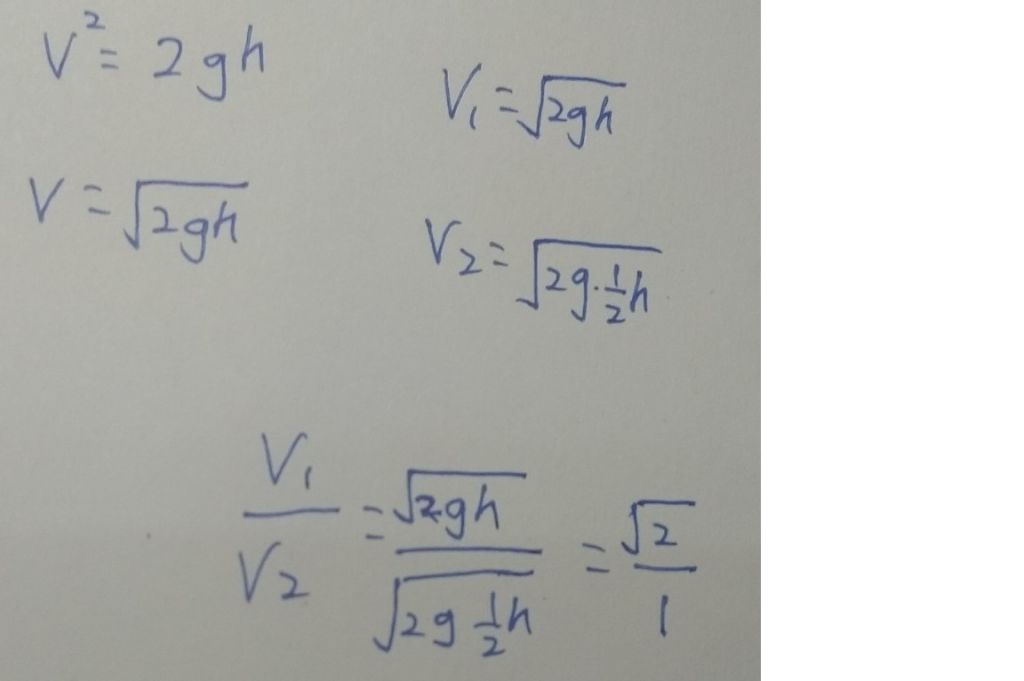 V² = 2gh
V = √2gh
V₁ = √2gh
V₂ = √2g·½h
V₁/V₂ = √2gh/√2g½h = √2/1